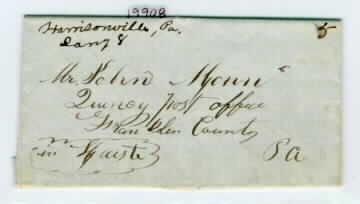 19908
Harrisonville, Pa. 5
Jany 8
Mr John Mown
Quincy Post office
Franklin County
in Haist Pa